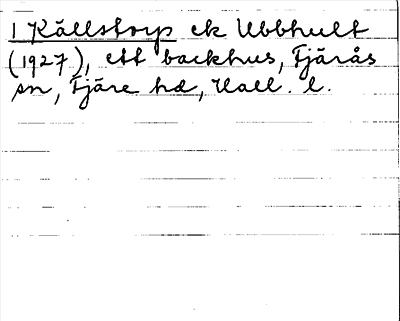 1 Källstorp ek Ubbhult
(1927), ett backhus, Fjärås
sn, Fjäre hd, Hall. l.